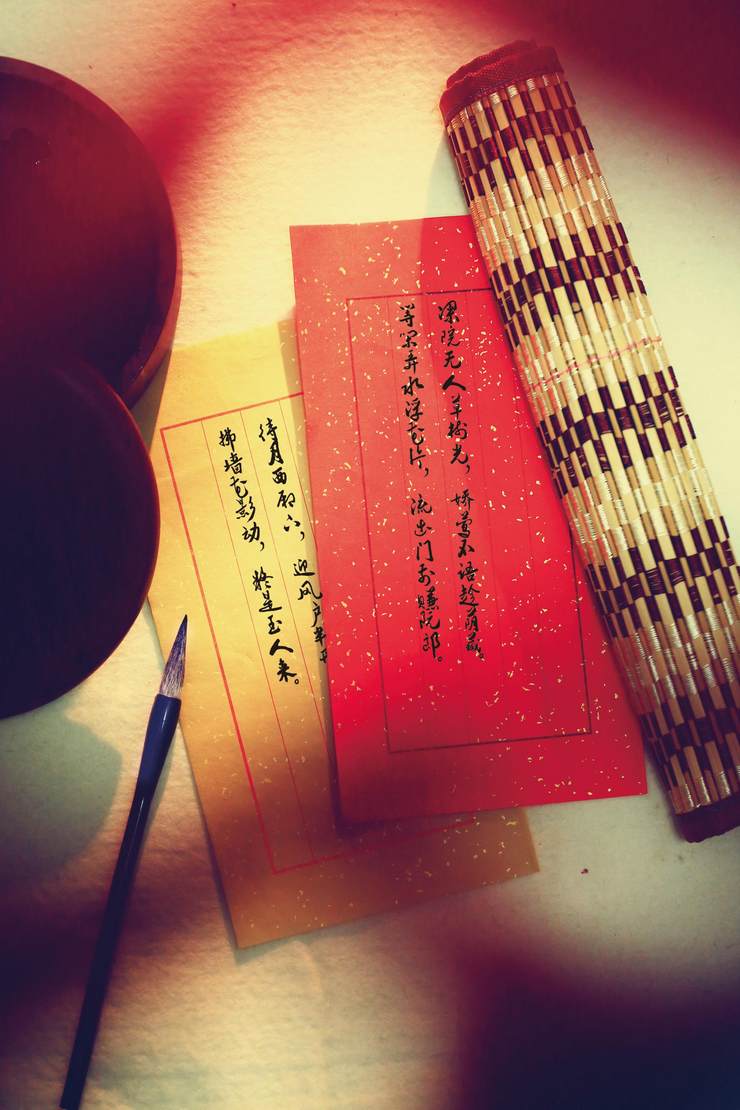 深院无人草树光，娇莺不语趁荫藏。
等闲弄水浮花片，流出门前赚阮郎。
待月西厢下，迎风户半
拂墙花影动，疑是玉人来。